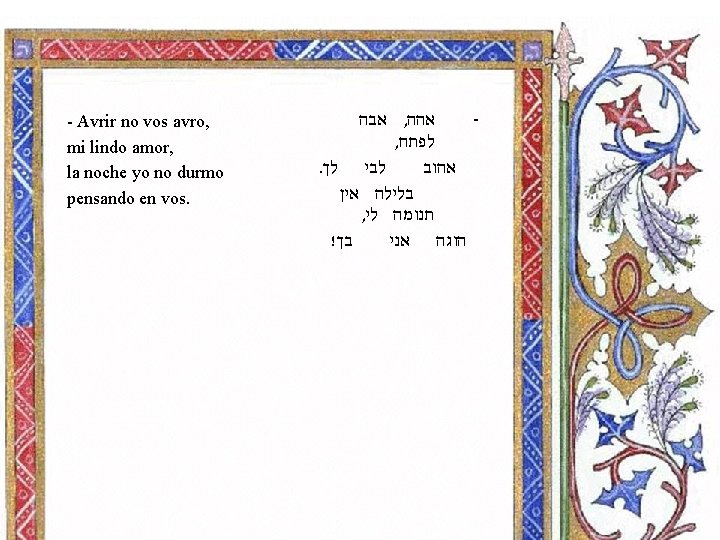 - Avrir no vos avro,
mi lindo amor,
la noche yo no durmo
pensando en vos.
- אהה, אבה
לפתח,
אהוב לבי לך.
בלילה אין
תנומה לי,
הוגה אני בך!